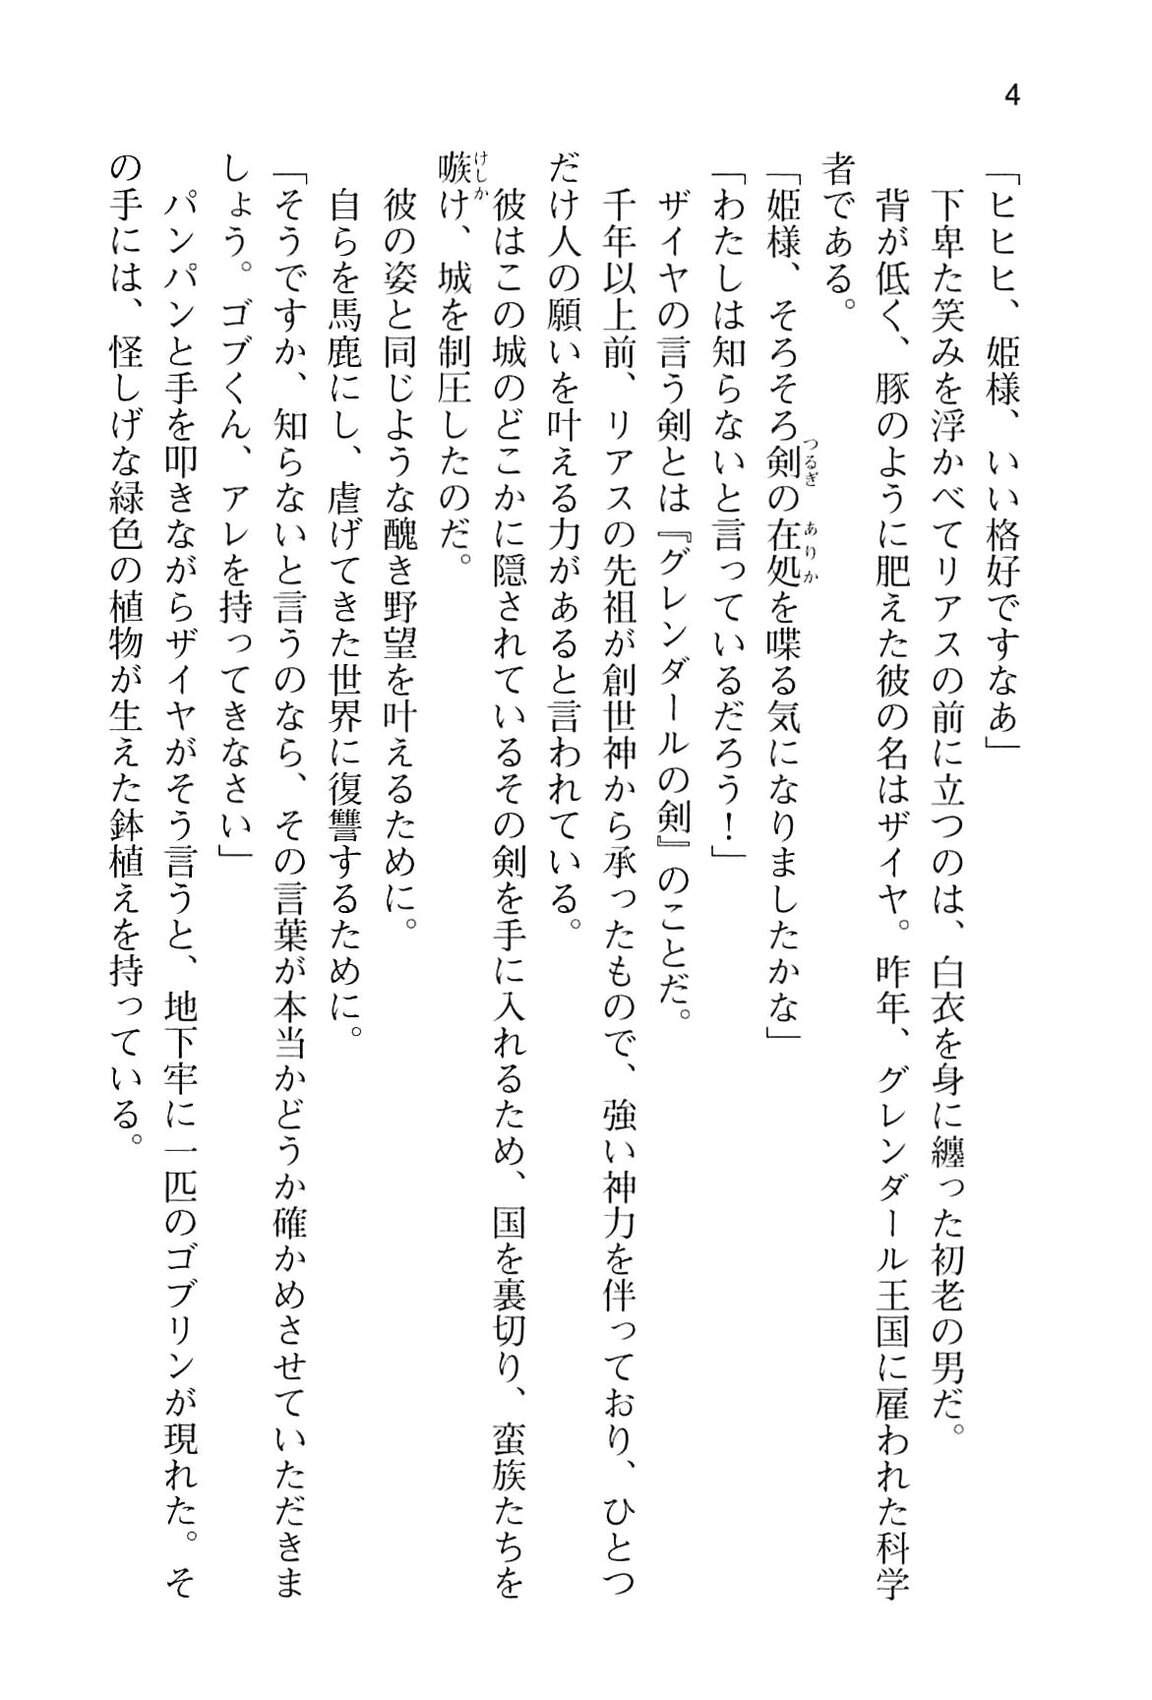 4
「ヒヒヒ、姫様、いい格好ですなあ」
下卑た笑みを浮かべてリアスの前に立つのは、白衣を身に纏った初老の男だ。
背が低く、豚のように肥えた彼の名はザイヤ。昨年、グレンダール王国に雇われた科学
者である。
「姫様、そろそろ剣の在処を喋る気になりましたかな」
「わたしは知らないと言っているだろう！」
ザイヤの言う剣とは『グレンダールの剣』のことだ。
千年以上前、リアスの先祖が創世神から承ったもので、強い神力を伴っており、ひとつ
だけ人の願いを叶える力があると言われている。
彼はこの城のどこかに隠されているその剣を手に入れるため、国を裏切り、蛮族たちを
嗾け、城を制圧したのだ。
彼の姿と同じような醜き野望を叶えるために。
自らを馬鹿にし、虐げてきた世界に復讐するために。
「そうですか、知らないと言うのなら、その言葉が本当かどうか確かめさせていただきま
しょう。ゴブくん、アレを持ってきなさい」
パンパンと手を叩きながらザイヤがそう言うと、地下牢に一匹のゴブリンが現れた。そ
の手には、怪しげな緑色の植物が生えた鉢植えを持っている。
つるぎ
ありか
けしか